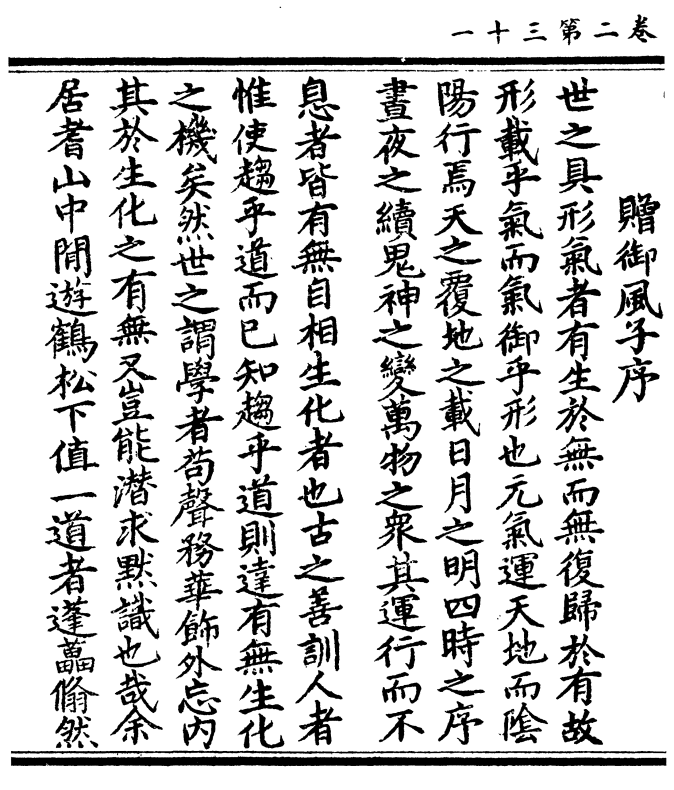 卷二第三十一
贈御風子序
世之具形氣者有生於無而無復歸於有故
形載乎氣而氣御乎形也元氣運天地而陰
陽行焉天之覆地之載日月之明四時之序
晝夜之續鬼神之變萬物之衆其運行而不
息者皆有無自相生化者也古之善訓人者
惟使趨乎道而已知趨乎道則達有無生化
之機矣然世之謂學者苟聲務華飾外忘内
其於生化之有無又豈能潛求默識也哉余
居耆山中閒遊鶴松下值一道者蓬藟翛然